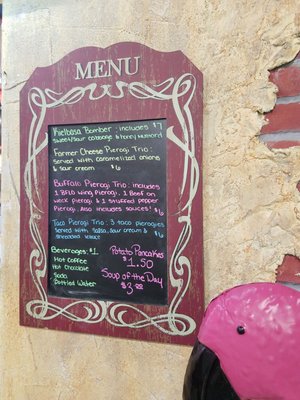 MENU
Kielbasa Bomber: includes $7
sweet/sour cabbage & honey mustard
Farmer Cheese Pierogi Trio:
Served with caramelized onions
& sour cream $6
Buffalo Pierogi Trio: includes
1 BFLO wing Pierogi, 1 Beef on
weck Pierogi & 1 stuffed pepper
Pierogi. Also includes sauces! $6
Taco Pierogi Trio: 3 taco pierogies
served with salsa, sour cream &
shredded $6
Beverages: $1
Hot Coffee
Hot Chocolate
Soda
Bottled Water
Potato Pancakes
$1.50
Soup of the Day
$3.00